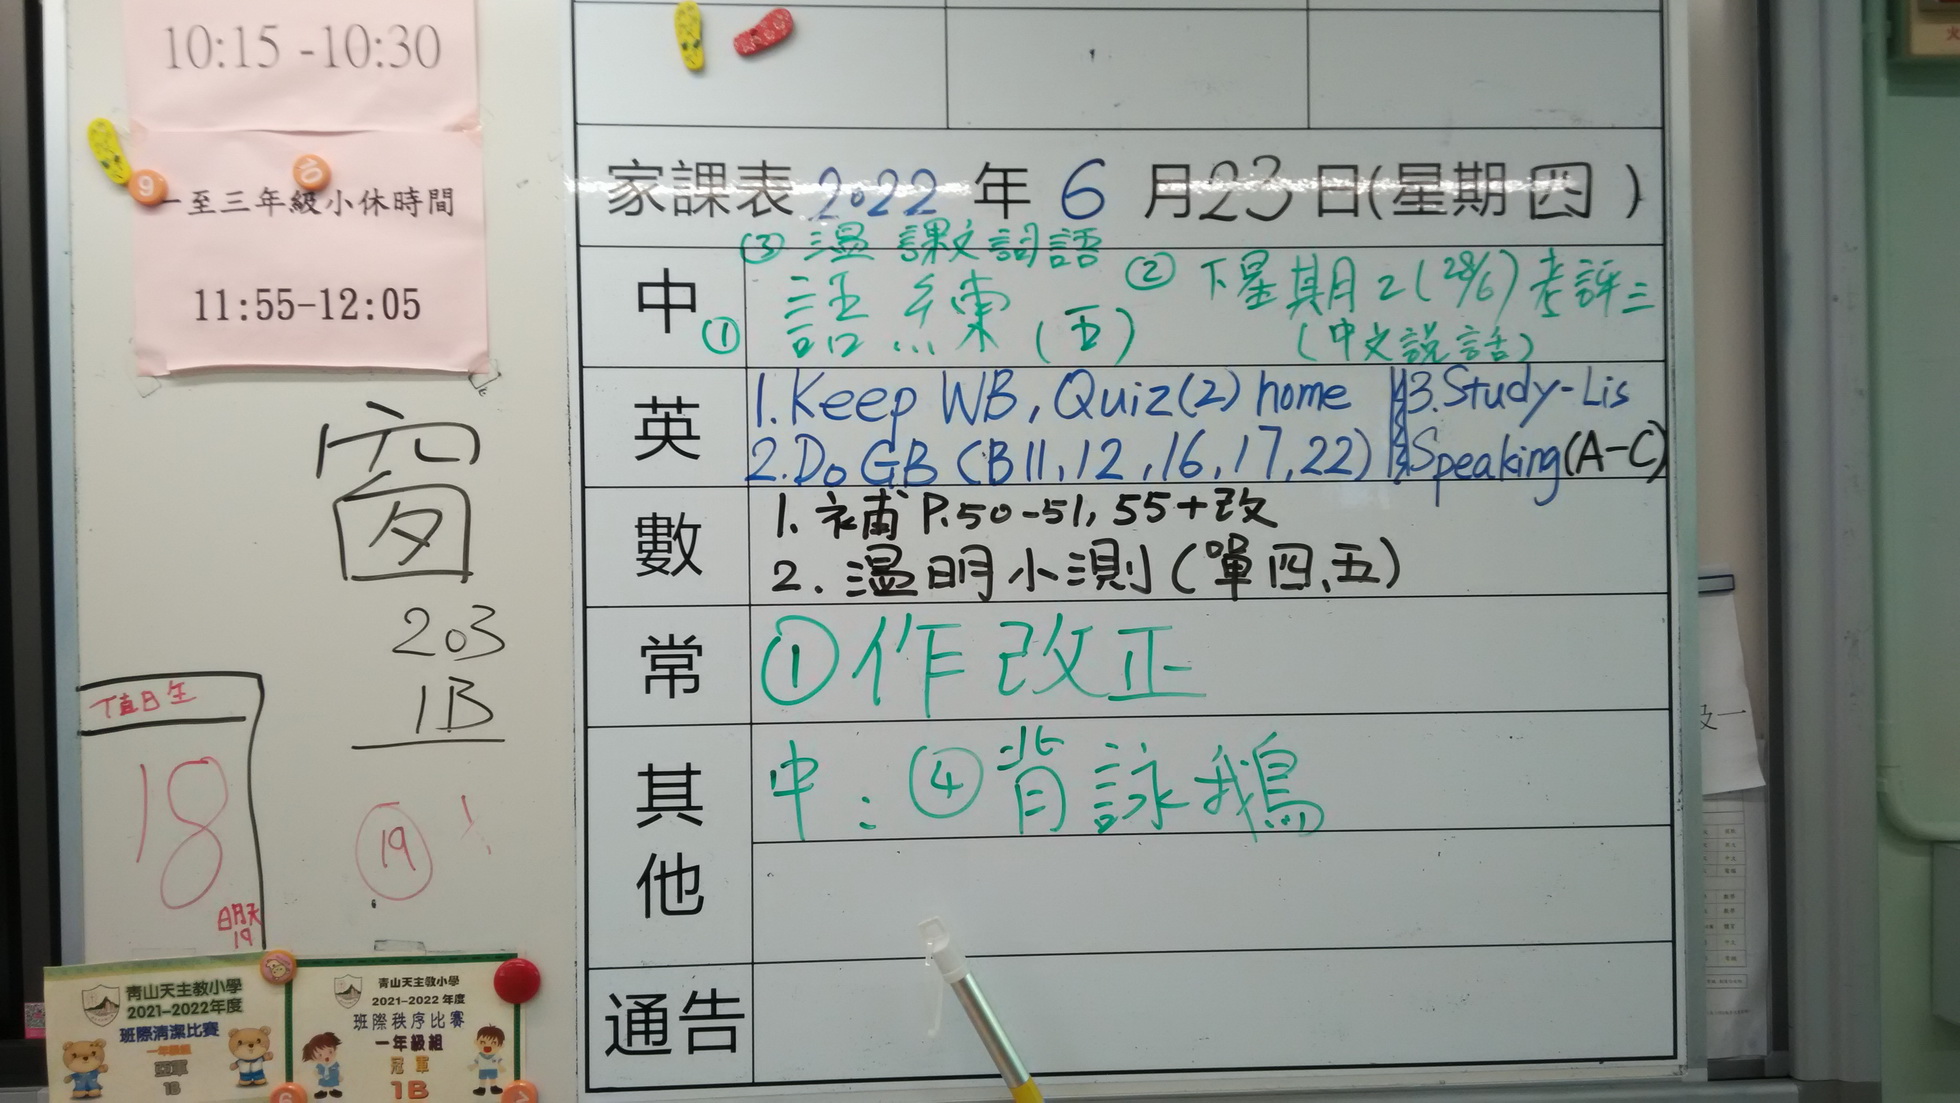 10:15 -10:30
一至三年級小休時間
11:55-12:05
窗
203
1B
值日生
18
明天
19
19
青山天主教小學
2021-2022年度
班際清潔比賽
一年級組
亞軍
1B
青山天主教小學
2021-2022 年度
班際秩序比賽
一年級組
冠軍
1B
家課表 2022 年 6 月 23 日(星期四)
③ 溫 課文詞語
中 ① 語練(五) ② 下星期2(28/6)考評三
(中文說話)
英 1. Keep WB, Quiz(2) home 3. Study-Lis
2. Do GB (B11, 12, 16, 17, 22) Speaking(A-C)
數 1. 補 P.50-51, 55+改
2. 溫明小測(單四、五)
常 ①作改正
其他 中:④背詠鵝
通告